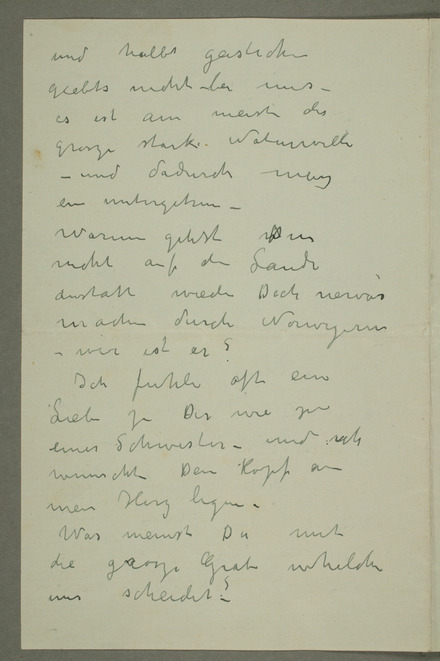 und halbt gestochn
giebts nicht bei uns –
es ist am meiste die
grosze starke Naturwille
– und dadurch musz
ein untergehen –
Warum gehst Du
nicht auf den Lande
anstatt wieder Dich nervös
machen durch Norwegerin
– wie ist es?
Ich fuhle oft ein
Liebe zu Dir wie zu
eines Schwester – und ich
wunscht Dein Kopf an
mein Herz legen –
Was meinst Du mit
die grosze Grab whilche
uns scheidet?